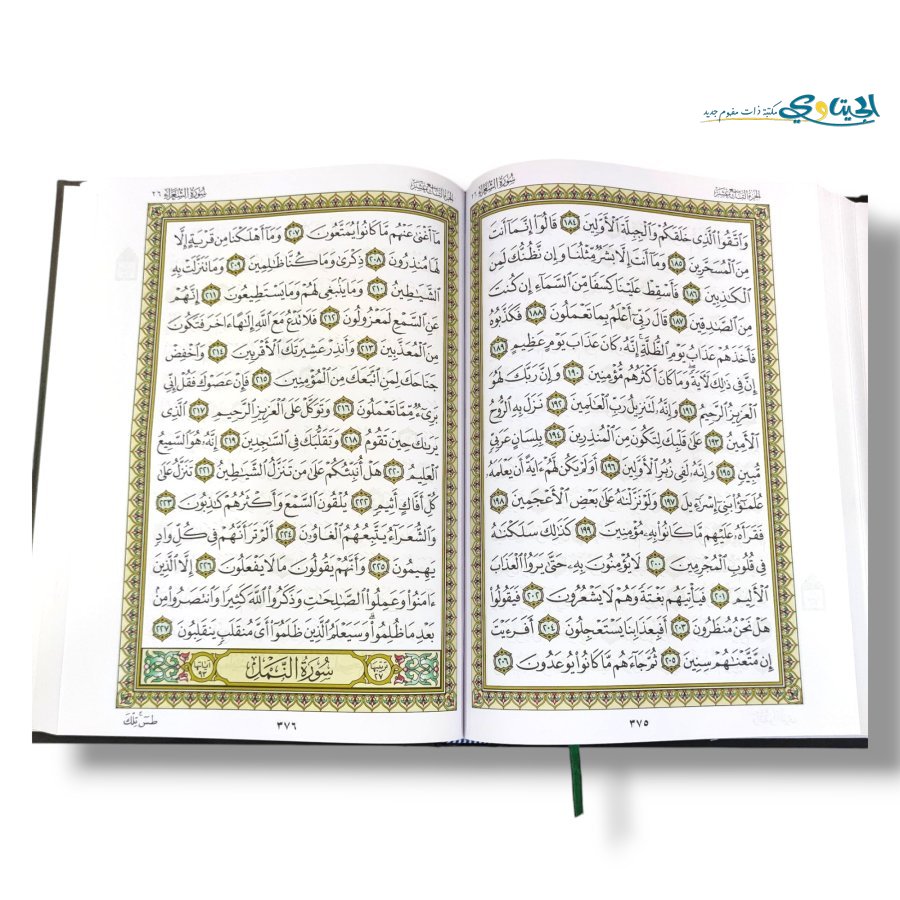 الجيتاوي مكتبة ذات مفهوم جديد
الجزء التاسع عشر سورة الشعراء
وَٱتَّقُوا۟ ٱلَّذِى خَلَقَكُمْ وَٱلْجِبِلَّةَ ٱلْأَوَّلِينَ ١٨٤ قَالُوٓا۟ إِنَّمَآ أَنتَ
مِنَ ٱلْمُسَحَّرِينَ ١٨٥ وَمَآ أَنتَ إِلَّا بَشَرٌ مِّثْلُنَا وَإِن نَّظُنُّكَ لَمِنَ
ٱلْكَٰذِبِينَ ١٨٦ فَأَسْقِطْ عَلَيْنَا كِسَفًا مِّنَ ٱلسَّمَآءِ إِن كُنتَ
مِنَ ٱلصَّٰدِقِينَ ١٨٧ قَالَ رَبِّىٓ أَعْلَمُ بِمَا تَعْمَلُونَ ١٨٨ فَكَذَّبُوهُ
فَأَخَذَهُمْ عَذَابُ يَوْمِ ٱلظُّلَّةِ ۚ إِنَّهُۥ كَانَ عَذَابَ يَوْمٍ عَظِيمٍ ١٨٩
إِنَّ فِى ذَٰلِكَ لَءَايَةً ۖ وَمَا كَانَ أَكْثَرُهُم مُّؤْمِنِينَ ١٩٠ وَإِنَّ رَبَّكَ لَهُوَ
ٱلْعَزِيزُ ٱلرَّحِيمُ ١٩١ وَإِنَّهُۥ لَتَنزِيلُ رَبِّ ٱلْعَٰلَمِينَ ١٩٢ نَزَلَ بِهِ ٱلرُّوحُ
ٱلْأَمِينُ ١٩٣ عَلَىٰ قَلْبِكَ لِتَكُونَ مِنَ ٱلْمُنذِرِينَ ١٩٤ بِلِسَانٍ عَرَبِىٍّ
مُّبِينٍ ١٩٥ وَإِنَّهُۥ لَفِى زُبُرِ ٱلْأَوَّلِينَ ١٩٦ أَوَلَمْ يَكُن لَّهُمْ ءَايَةً أَن يَعْلَمَهُۥ
عُلَمَٰٓؤُا۟ بَنِىٓ إِسْرَٰٓءِيلَ ١٩٧ وَلَوْ نَزَّلْنَٰهُ عَلَىٰ بَعْضِ ٱلْأَعْجَمِينَ ١٩٨
فَقَرَأَهُۥ عَلَيْهِم مَّا كَانُوا۟ بِهِۦ مُؤْمِنِينَ ١٩٩ كَذَٰلِكَ سَلَكْنَٰهُ
فِى قُلُوبِ ٱلْمُجْرِمِينَ ٢٠٠ لَا يُؤْمِنُونَ بِهِۦ حَتَّىٰ يَرَوُا۟ ٱلْعَذَابَ
ٱلْأَلِيمَ ٢٠١ فَيَأْتِيَهُم بَغْتَةً وَهُمْ لَا يَشْعُرُونَ ٢٠٢ فَيَقُولُوا۟
هَلْ نَحْنُ مُنظَرُونَ ٢٠٣ أَفَبِعَذَابِنَا يَسْتَعْجِلُونَ ٢٠٤ أَفَرَءَيْتَ
إِن مَّتَّعْنَٰهُمْ سِنِينَ ٢٠٥ ثُمَّ جَآءَهُم مَّا كَانُوا۟ يُوعَدُونَ ٢٠٦
٣٧٥
الجزء التاسع عشر سورة الشعراء ٢٦
مَآ أَغْنَىٰ عَنْهُم مَّا كَانُوا۟ يُمَتَّعُونَ ٢٠٧ وَمَآ أَهْلَكْنَا مِن قَرْيَةٍ إِلَّا
لَهَا مُنذِرُونَ ٢٠٨ ذِكْرَىٰ وَمَا كُنَّا ظَٰلِمِينَ ٢٠٩ وَمَا تَنَزَّلَتْ بِهِ
ٱلشَّيَٰطِينُ ٢١٠ وَمَا يَنۢبَغِى لَهُمْ وَمَا يَسْتَطِيعُونَ ٢١١ إِنَّهُمْ
عَنِ ٱلسَّمْعِ لَمَعْزُولُونَ ٢١٢ فَلَا تَدْعُ مَعَ ٱللَّهِ إِلَٰهًا ءَاخَرَ فَتَكُونَ
مِنَ ٱلْمُعَذَّبِينَ ٢١٣ وَأَنذِرْ عَشِيرَتَكَ ٱلْأَقْرَبِينَ ٢١٤ وَٱخْفِضْ
جَنَاحَكَ لِمَنِ ٱتَّبَعَكَ مِنَ ٱلْمُؤْمِنِينَ ٢١٥ فَإِنْ عَصَوْكَ فَقُلْ إِنِّى
بَرِىٓءٌ مِّمَّا تَعْمَلُونَ ٢١٦ وَتَوَكَّلْ عَلَى ٱلْعَزِيزِ ٱلرَّحِيمِ ٢١٧ ٱلَّذِى
يَرَىٰكَ حِينَ تَقُومُ ٢١٨ وَتَقَلُّبَكَ فِى ٱلسَّٰجِدِينَ ٢١٩ إِنَّهُۥ هُوَ ٱلسَّمِيعُ
ٱلْعَلِيمُ ٢٢٠ هَلْ أُنَبِّئُكُمْ عَلَىٰ مَن تَنَزَّلُ ٱلشَّيَٰطِينُ ٢٢١ تَنَزَّلُ عَلَىٰ
كُلِّ أَفَّاكٍ أَثِيمٍ ٢٢٢ يُلْقُونَ ٱلسَّمْعَ وَأَكْثَرُهُمْ كَٰذِبُونَ ٢٢٣
وَٱلشُّعَرَآءُ يَتَّبِعُهُمُ ٱلْغَاوُۥنَ ٢٢٤ أَلَمْ تَرَ أَنَّهُمْ فِى كُلِّ وَادٍ
يَهِيمُونَ ٢٢٥ وَأَنَّهُمْ يَقُولُونَ مَا لَا يَفْعَلُونَ ٢٢٦ إِلَّا ٱلَّذِينَ
ءَامَنُوا۟ وَعَمِلُوا۟ ٱلصَّٰلِحَٰتِ وَذَكَرُوا۟ ٱللَّهَ كَثِيرًا وَٱنتَصَرُوا۟ مِنۢ
بَعْدِ مَا ظُلِمُوا۟ ۗ وَسَيَعْلَمُ ٱلَّذِينَ ظَلَمُوٓا۟ أَىَّ مُنقَلَبٍ يَنقَلِبُونَ ٢٢٧
ترتيبها ٢٧ سُورَةُ النَّمْلِ آياتها ٩٣
٣٧٦
طسٓ ۚ تِلْكَ